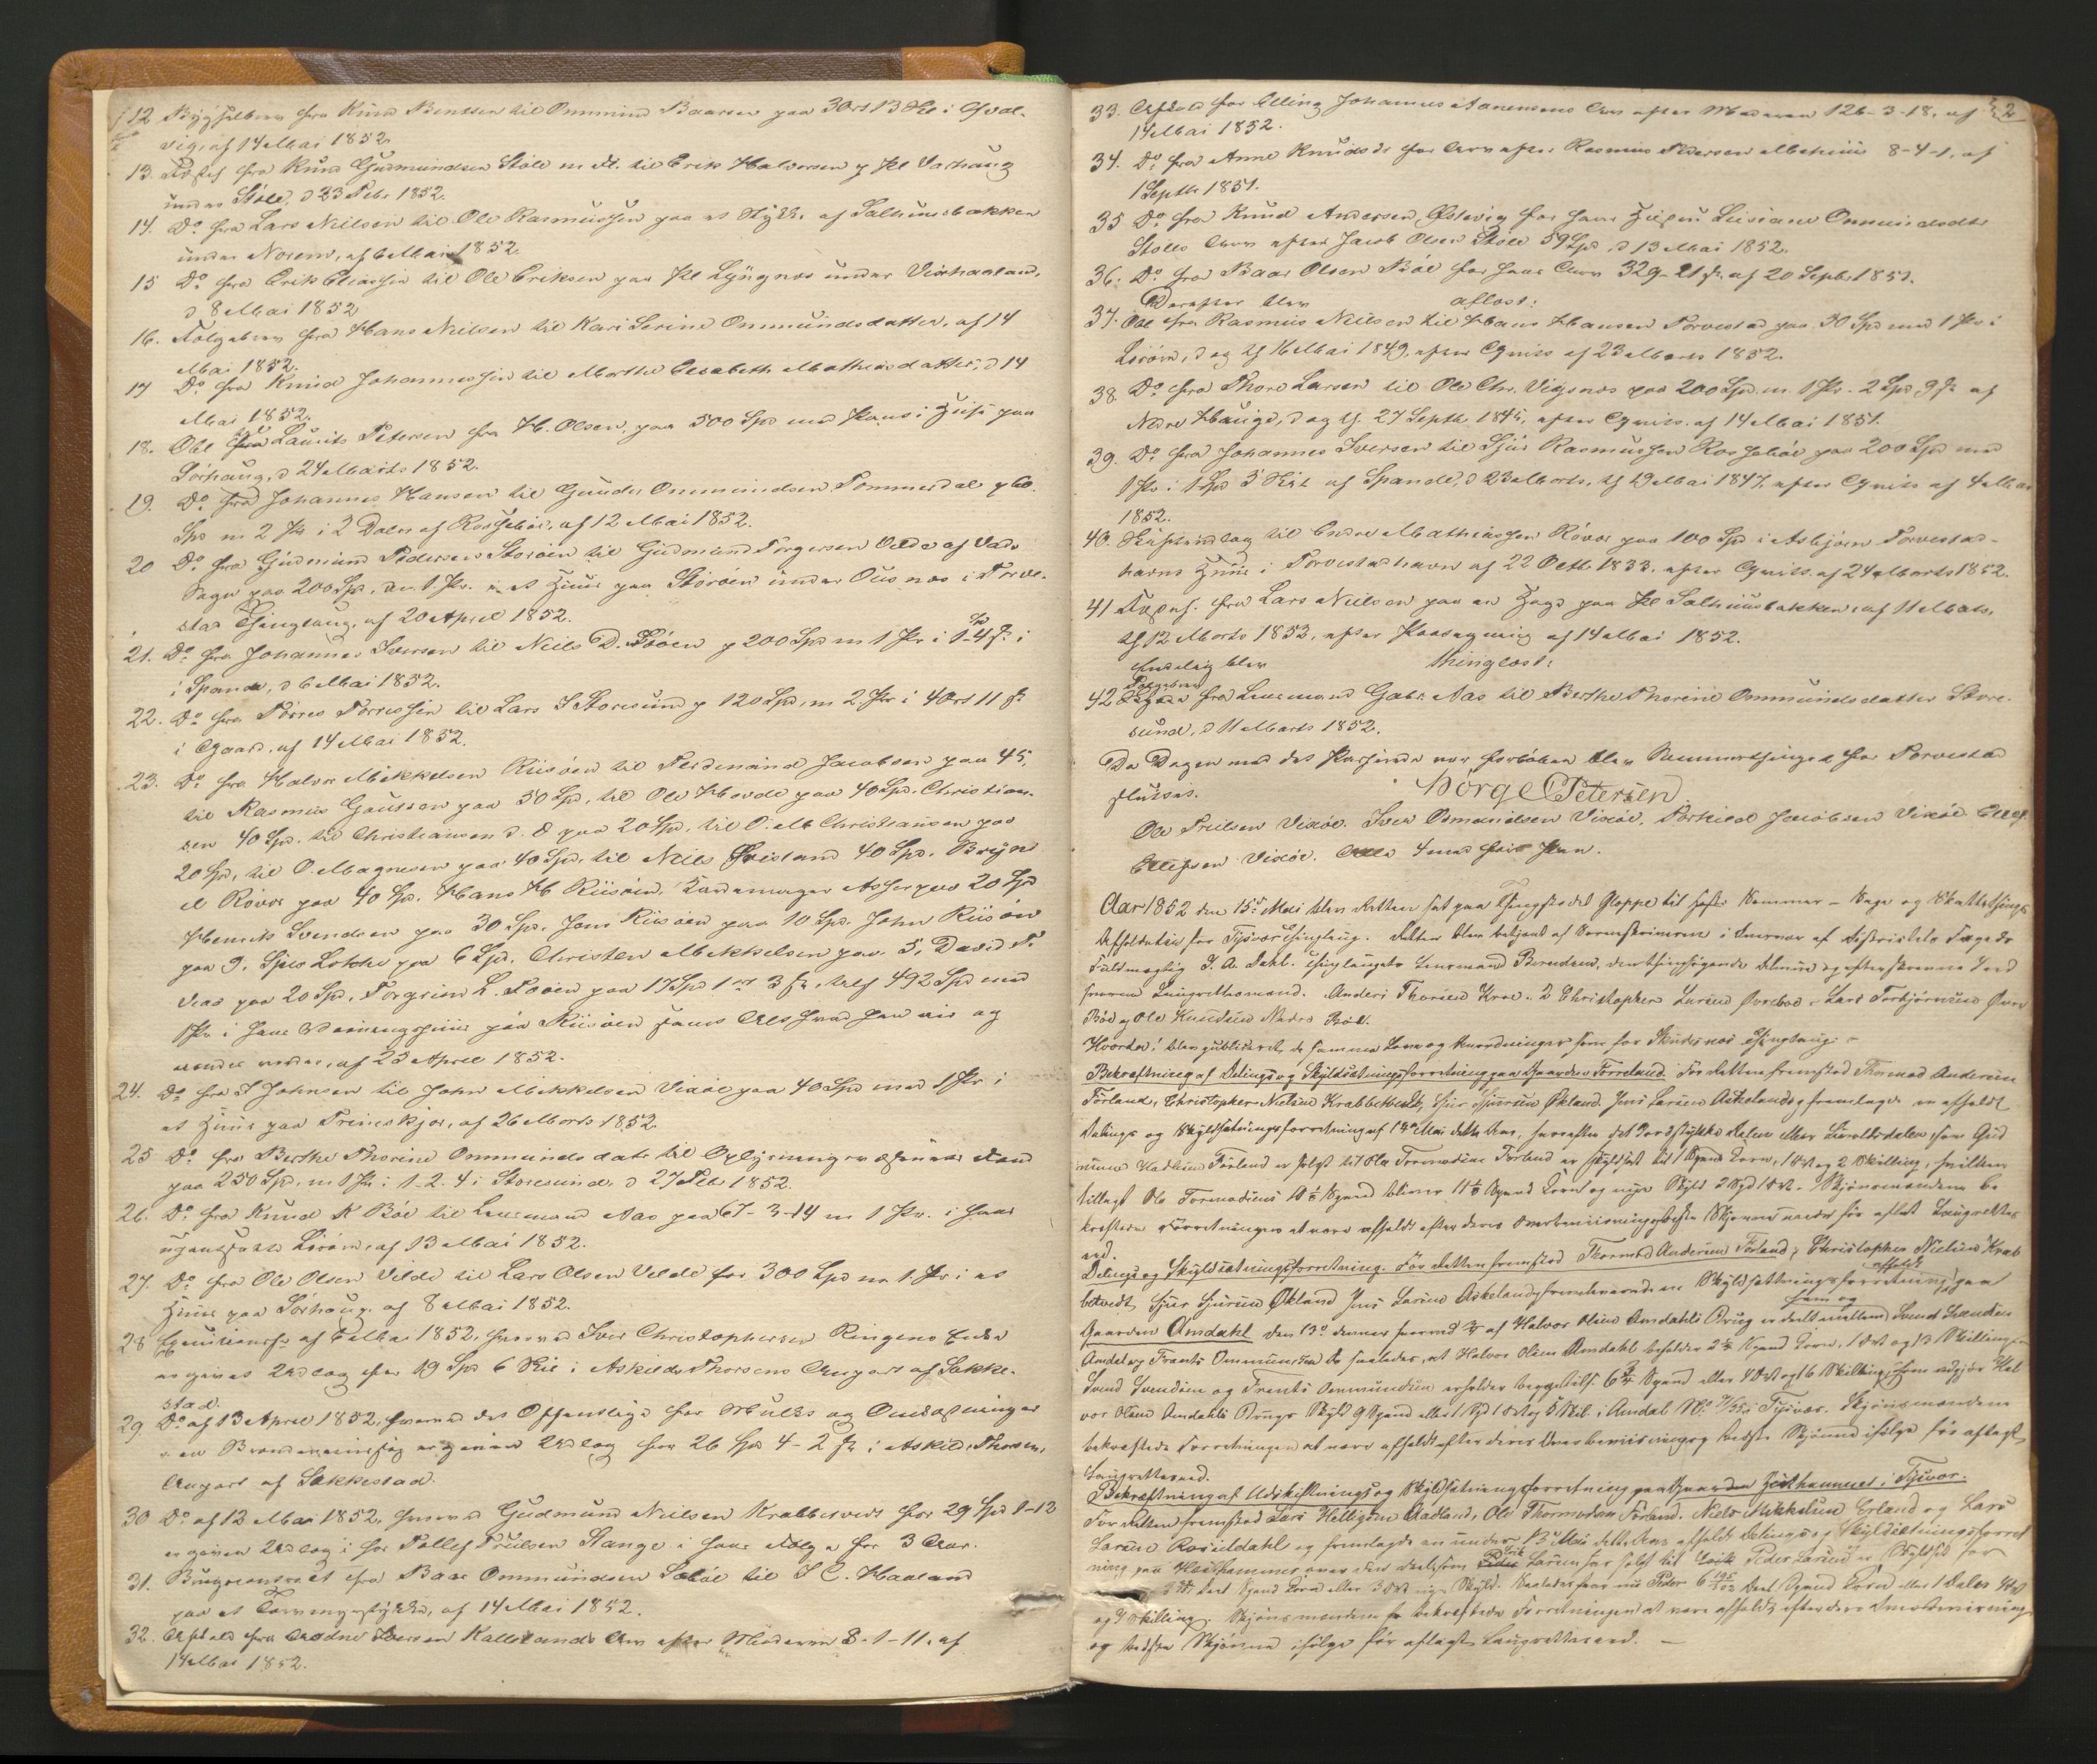 12 Bygselbrev fra Knud Bentsen til Ommund Baarsen paa 3 Ort 13 Sk i Qval-
vig, af 14 Mai 1852.
13. Fæstes. fra Knud Gudmundsen Støle m fl. til Erik Halvorsen p Pl Varhaug
under Støle, d 23 Febr 1852.
14. Do fra Lars Nielsen til Ole Rasmussen paa et Stykke af Salhuusbakken
under Norem, af 6 Mai 1852.
15 Do fra Erik Eliassen til Ole Eriksen paa Pl Lyngnes under Vishaaland,
d 8 Mai 1852
16. Følgebrev fra Hans Nielsen til Kari Serine Ommundsdatter, af 14
Mai 1852.
17 Do fra Knud Johannessen til Marthe Elisabeth Mathiasdatter, d 14
Mai 1852.
18. Obl til Laurits Petersen fra H. Olsen, paa 500 Spd med Pant i Huse paa
Sørhaug, d 24 Marts 1852.
19. Do fra Johannes Hansen til Gunder Ommundsen Sommerdal p 60
Spd m 2 Pr i 2 Daler af Rossebøe, af 12 Mai 1852.
20 Do fra Gudmund Pedersen Storøen til Gudmund Torgersen Velde af Vads
Sogn paa 200 Spd, m. 1 Pr. i et Huus paa Storøen under Ousnes i Torve-
stad Thinglaug, af 20 April 1852.
21. Do fra Johannes Iversen til Niels D. Føøen p 200 Spd m 1 Pr i 1 Spd 4 s i
i Spanne, d 6 Mai 1852.
22. Do fra Torres Torressen til Lars S Storesund p 120 Spd, m 2 Pr i 4 Ort 11 s
i Gaard, af 14 Mai 1852.
23. Do fra Halvor Mikkelsen Riisøen til Ferdinand Jacobsen paa 45,
til Rasmus Goutsen paa 50 Spd, til Ole Hovde paa 40 Spd. Christian-
sen 40 Spd. til Christiansen d. 8 paa 20 Spd, til O. M Christiansen paa
20 Spd, til O. Magnesen paa 40 Spd, til Niels Qvisland 40 Spd. Bryn
el Røvær paa 40 Spd. Hans H Riisøen, Asser paa 20 Spd
Henrik Svendsen paa 30 Spd. Jens Riisøen paa 10 Spd. John Riisøen
paa 9. Sjur Lothe paa 6 Spd. Christen Mikkelsen paa 5, David
Aas paa 20 Spd, Torgrim L. Føøen paa 17 Spd 1 ort 3 s, tils 492 Spd med
1 Pr i hans Vaaningshuus paa Riisøen samt Alt hvad han eier og
eiende vorder, af 23 April 1852.
24. Do fra S Johnsen til John Mikkelsen Vixøe paa 40 Spd med 1 Pr i
et Huus paa Treineskjær, af 26 Marts 1852.
25 Do fra Berthe Thorine Ommundsdatr til Oplysningsvæsenets Fond
paa 250 Spd, m 1 Pr i 1-2-4 i Storesund, d 27 Febr 1852.
26. Do fra Knud K Bøe til Lensmand Aas paa 67-3-14 m 1 Pr. i hans
Liøren, af 13 Mai 1852.
27. Do fra Ole Olsen Velde til Lars Olsen Velde for 300 Spd m 1 Pr i et
Huus paa Sørhaug, af 8 Mai 1852.
28 Executionsf af 7 Mai 1852, hvorved Iver Christophersen Ringens Enke
er givet Udlæg for 19 Spd 6 Skl i Askild Thorsens Anpart af Sakke-
stad.
29 Do af 13 April 1852, hvorved det Offentlige for Mulkt og Omkostninger
i en Brændeviinssag er given Udlæg for 26 Spd 4-2 s i Askild Thorsens
Anpart af Sakkestad.
30 Do af 12 Mai 1852, hvorved Gudmund Nielsen Krabbetveds for 29 Spd 1-13
er given Udlæg i for Tollef Troilsen Stange i hans Følge for 3 Aar.
31. Brugscontract fra Baar Ommundsen Sæbøe til S C. Haaland
paa et Torvmyrstykke, af 14 Mai 1852.
32. Afkald fra Aadne Iversen Kallelands Arv efter Moderen 8-1-11, af
14 Mai 1852.
33. Afkald for Elling Johannes Aanensens Arv efter Moderen 126-3-18, af 2
14 Mai 1852.
34. Do fra Anne Knudsdr for Arv efter Rasmus Pedersen 8-4-1, af
1 Septb 1851.
35 Do fra Knud Andersen Østevig for hans Hustru Lisiane Ommundsdtr
Støles Arv efter Jacob Olsen Støle 59 Spd, d 13 Mai 1852.
36. Do fra Baar Olsen Bøe for hans Arv 329- 21 s. af 20 Septb 1851.
Derefter blev aflæst:
37. Obl fra Rasmus Nielsen til Hans Hansen Torvestad paa 30 Spd med 1 Pr i
Liørn, d og th 16 Mai 1849, efter Qvitt af 23 Marts 1852.
38. Do fra Thore Larsen til Ole Chr. Vigsnes paa 200 Spd m. 1 Pr. 2 Spd 9 s af
Nedre Hauge, d og th. 27 Septb 1845, efter Qvitt. af 14 Mai 1851.
39. Do fra Johannes Iversen til Sjur Rasmussen Rossebøe paa 200 Spd med
1 Pr i 1 Spd 3 Skl af Spande, d 23 Marts, th 19 Mai 1847, efter Qvitt af 4 Mai
1852.
40. til Endre Mathiassen Røvær paa 100 Spd i Asbjørn Torvestad-
havns Huus i Torvestadhavn af 22 Octb. 1833, efter Qvitt. af 24 Marts 1852.
41 Fæstes. fra Lars Nielsen paa en Hage paa Pl Salhuusbakken, af 11 Marts,
th 12 Marts 1853, efter Paategning af 14 Mai 1852.
Endelig blev thinglæst:
Følgebrev
42 fra Lensmand Gabr. Aas til Berthe Thorine Ommundsdatter Store-
sund, d 11 Marts 1852.
Da Dagen med det Passerede var forløben blev Sommerthinget for Torvestad
sluttet. Børge Petersen
Ole Troilsen Vixøe. Iver Osmundsen Vixøe, Torkild Jacobsen Vixøe. Ellef
Ellefsen Vixøe. Alle 4 med ført Pen.
Aar 1852 den 15d Mai blev Retten sat paa Thingstedet Gloppe til Høste Sommer- Sage og Skattethings
Afholdelse for Tysvær Thinglaug. Retten blev betjent af Sorenskriveren i Nærvær af Districtets Fogeds
Fuldmægtig J. A. Dahl. Thinglaugets Lensmand Berentsen, den thingsøgende Almue og efterskrevne
svorne Laugrettesmænd. Anders Thorsen Kroe. 2 Christopher Larsen Øvrebøe. Lars Torbjørnsen Øvre
Bøe og Ole Knudsen Nedre Bøe.
Hvorda! blev publiceret de samme Love og Anordninger som for Skudesnes Thinglaug. –
Bekræftning af Delings og Skyldsætningsforretning paa Gaarden Førreland. For Retten fremstod Thormod Andersen
Førland, Christopher Nielsen Krabbetvedt, Sjur Sjursen Økland Jens Larsen Askeland og fremlagde en afholdt
Delings og Skyldsætningsforretning af 14de Mai dette Aar, hvorefter det Jordstykke Dalen eller Liarvoldsdalen, som Gud
mund Førland er solgt til Ole Tormodsen Førland er skyldsat til 1 Spand Korn, 1 Ort og 2 Skilling, hvilken
tillagt Ole Tormodsens 10 Spand bliver 11 Spand Korn og nye Skyld 2 Spd 1 Ort. Skjønsmændene be
kræftede Forretningen at være afholdt efter deres Overbeviisning og bedste Skjønnende før aflagt Laugrettes
eed.
Delings og Skyldsætningsforretning. For Retten fremstod Thormod Andersen Førland, Christopher Nielsen Krab
betvedt, Sjur Sjursen Økland Jens Larsen Askeland og fremlagde en Skyldsætningsforretning afholdt paa
Gaarden Amdahl den 13de dennes hvorved af Halvor Olsen Amdahls Brug er deelt mellem ham og Svend Svendsen
Amdal og Frants Ommundsen saaledes, at Halvor Olsen Amdahl beholder 2 Spand Korn, 1 Ort og 13 Skilling,
Svend Svendsen og Frants Ommundsen erholder begge tils. 6 Spand eller 4 Ort og 16 Skilling, som udgjør Hal
vor Olsen Amdahls Brugs Skyld 9 Spand eller 1 Spd 1 Ort og 5 Skil. i Amdal i Tysvær. Skjønsmændene
bekræftede Forretningen at være afholdt efter deres Overbeviisning og bedste Skjønnende ifølge før aflagt
Laugretteseed.
Bekræftning af Udskiftnings og Skyldsætningsforretning paa Gaarden Hesthammer i Tysvær.
For Retten fremstod Lars Helligsen Aadland, Ole Thormodsen Førland, Niels Mikkelsen Erland og Lars
Larsen Rossedahl og fremlagde en under 13de Mai dette Aar afholdt Delings og Skyldsætningsforret
ning paa Hesthammer over den Deel som Erik Larsen har solgt til Peder Larsen er Skyldsat for
Spand Korn eller 3 Ort nye Skyld. Saaledes faar nu Peder 6 Spand Korn eller 1 Daler Ort
og 9 Skilling. Skjønsmændene bekræftede Forretningen at være afholdt efter deres Overbeviisning
og bedste Skjønnende ifølge før aflagt Laugretteseed. –